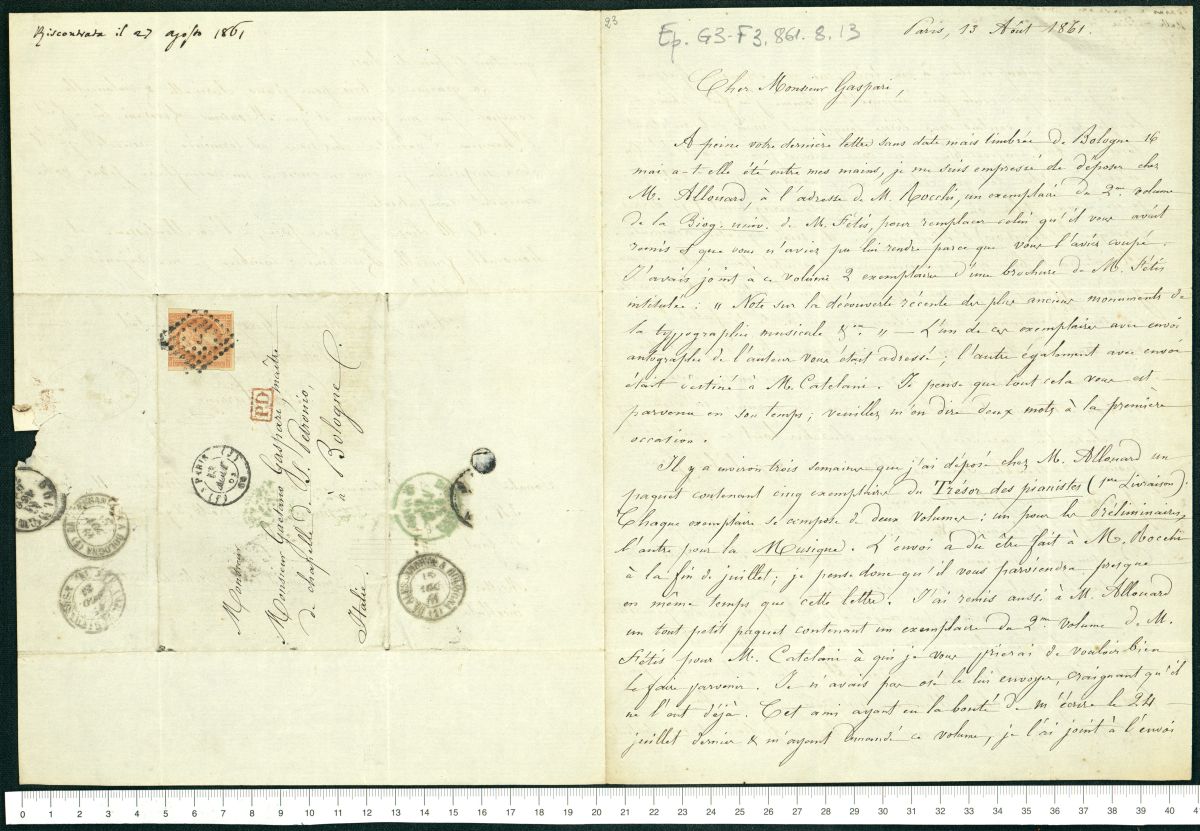 Riscontrata il 27 agosto 1861
PD
PARIS
BOLOGNA
Monsieur
Monsieur Gaetano Gaspari, maître
de chapelle de S. Petronio,
à Bologne
Italie.
23
Ep. G3-F3. 861. 8. 13
Paris, 13 Août 1861.
Cher Monsieur Gaspari,
A peine votre dernière lettre sans date mais timbrée de Bologne 16
mai a-t-elle été entre mes mains, je me suis empressé de déposer chez
M. Allouard, à l'adresse de M. Rocchi, un exemplaire du 2me volume
de la Biog. univ. de M. Fétis, pour remplacer celui qu'il vous avait
remis et que vous n'aviez pu lui rendre parce que vous l'aviez coupé.
J'avais joint à ce volume 2 exemplaire d'une brochure de M. Fétis
intitulée : " Note sur la découverte récente des plus anciens monuments de
la typographie musicale &ca. " — L'un de ces exemplaires avec envoi
autographe de l'auteur vous était adressé ; l'autre également avec envoi
était destiné à M. Catelani. Je pense que tout cela vous est
parvenu en son temps ; veuillez m'en dire deux mots à la première
occasion.
Il y a environ trois semaines que j'ai déposé chez M. Allouard un
paquet contenant cinq exemplaires du Trésor des pianistes (1re Livraison).
Chaque exemplaire se compose de deux volumes : un pour les Préliminaires,
l'autre pour la Musique. L'envoi a dû être fait à M. Rocchi
à la fin de juillet ; je pense donc qu'il vous parviendra presque
en même temps que cette lettre. J'ai remis aussi à M. Allouard
un tout petit paquet contenant un exemplaire du 2me volume de M.
Fétis pour M. Catelani à qui je vous prierai de vouloir bien
le faire parvenir. Je n'avais pas osé le lui envoyer, craignant qu'il
ne l'eut déjà. Cet ami ayant eu la bonté de m'écrire le 24
juillet dernier & m'ayant demandé ce volume, je l'ai joint à l'envoi
0 1 2 3 4 5 6 7 8 9 10 11 12 13 14 15 16 17 18 19 20 21 22 23 24 25 26 27 28 29 30 31 32 33 34 35 36 37 38 39 40 41